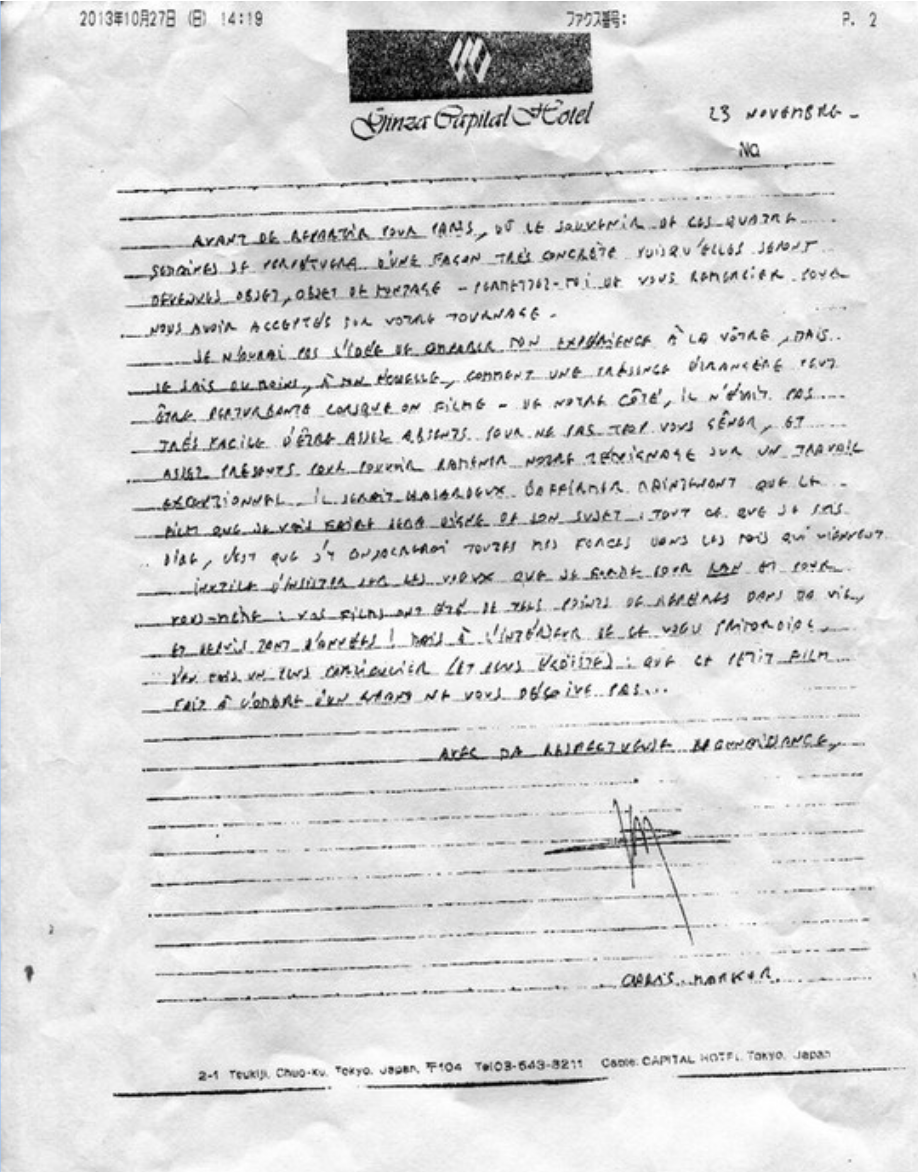 2013年10月27日 (日) 14:19 ファクス番号: P. 2
Ginza Capital Hotel
23 NOVEMBRE -
No.
AVANT DE REPARTIR POUR PARIS, OÙ LE SOUVENIR DE CES QUATRE
SEMAINES SE PERPÉTUERA D'UNE FAÇON TRÈS CONCRÈTE PUISQU'ELLES SERONT
DEVENUES OBJET, OBJET DE MONTAGE - PERMETTEZ-MOI DE VOUS REMERCIER POUR
NOUS AVOIR ACCEPTÉS SUR VOTRE TOURNAGE.
JE N'AURAI PAS L'IDÉE DE COMPARER MON EXPÉRIENCE À LA VÔTRE, MAIS
JE SAIS AU MOINS, À MON ÉCHELLE, COMMENT UNE PRÉSENCE ÉTRANGÈRE PEUT
ÊTRE PERTURBANTE LORSQUE ON FILME - DE NOTRE CÔTÉ, IL N'ÉTAIT PAS
TRÈS FACILE D'ÊTRE ASSEZ ABSENTS POUR NE PAS TROP VOUS GÊNER, ET
ASSEZ PRÉSENTS POUR POUVOIR RAMENER NOTRE TÉMOIGNAGE SUR UN TRAVAIL
EXCEPTIONNEL. IL SERAIT HASARDEUX D'AFFIRMER MAINTENANT QUE LE
FILM QUE JE VAIS FAIRE SERA DIGNE DE SON SUJET : TOUT CE QUE JE PUIS
DIRE, C'EST QUE J'Y CONSACRERAI TOUTES MES FORCES DANS LES MOIS QUI VIENNENT.
INUTILE D'INSISTER SUR LES VOEUX QUE JE FORME POUR RAN ET POUR
VOUS-MÊME : VOS FILMS ONT ÉTÉ DE TELS POINTS DE REPÈRES DANS MA VIE,
ET DEPUIS TANT D'ANNÉES ! MAIS À L'INTÉRIEUR DE CE VOEU PRIMORDIAL,
J'EN FAIS UN PLUS PARTICULIER (ET PLUS ÉGOÏSTE) : QUE CE PETIT FILM
FAIT À L'OMBRE D'UN GRAND NE VOUS DÉÇOIVE PAS...
AVEC MA RESPECTUEUSE RECONNAISSANCE,
CHRIS. MARKER
2-1 Tsukiji, Chuo-ku, Tokyo, Japan, 〒104 Tel 03-543-8211 Cable: CAPITAL HOTEL, Tokyo, Japan